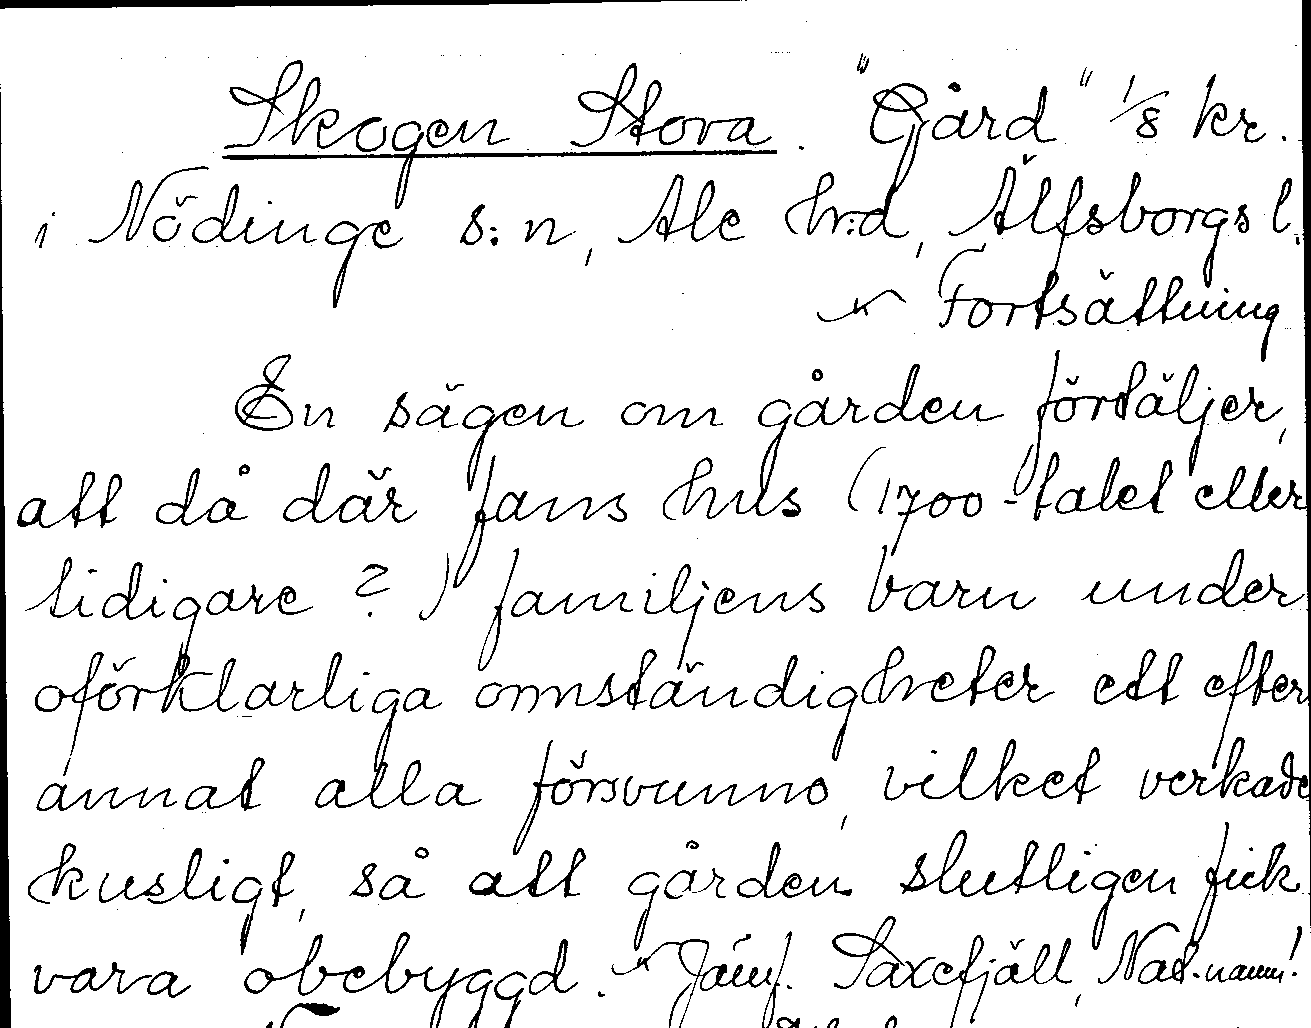 Skogen Stora. "Gård" 1/8 kr.
i Nödinge s:n, Ale hr:d, Älfsborgs l.
Fortsättning
En sägen om gården förtäljer,
att då där fans hus (1700-talet eller
tidigare?) familjens barn under
oförklarliga omständigheter ett efter
annat alla försvunno, vilket verkade
kusligt, så att gården slutligen fick
vara obebyggd. Jämf. Saxefjäll, Nat.namn!